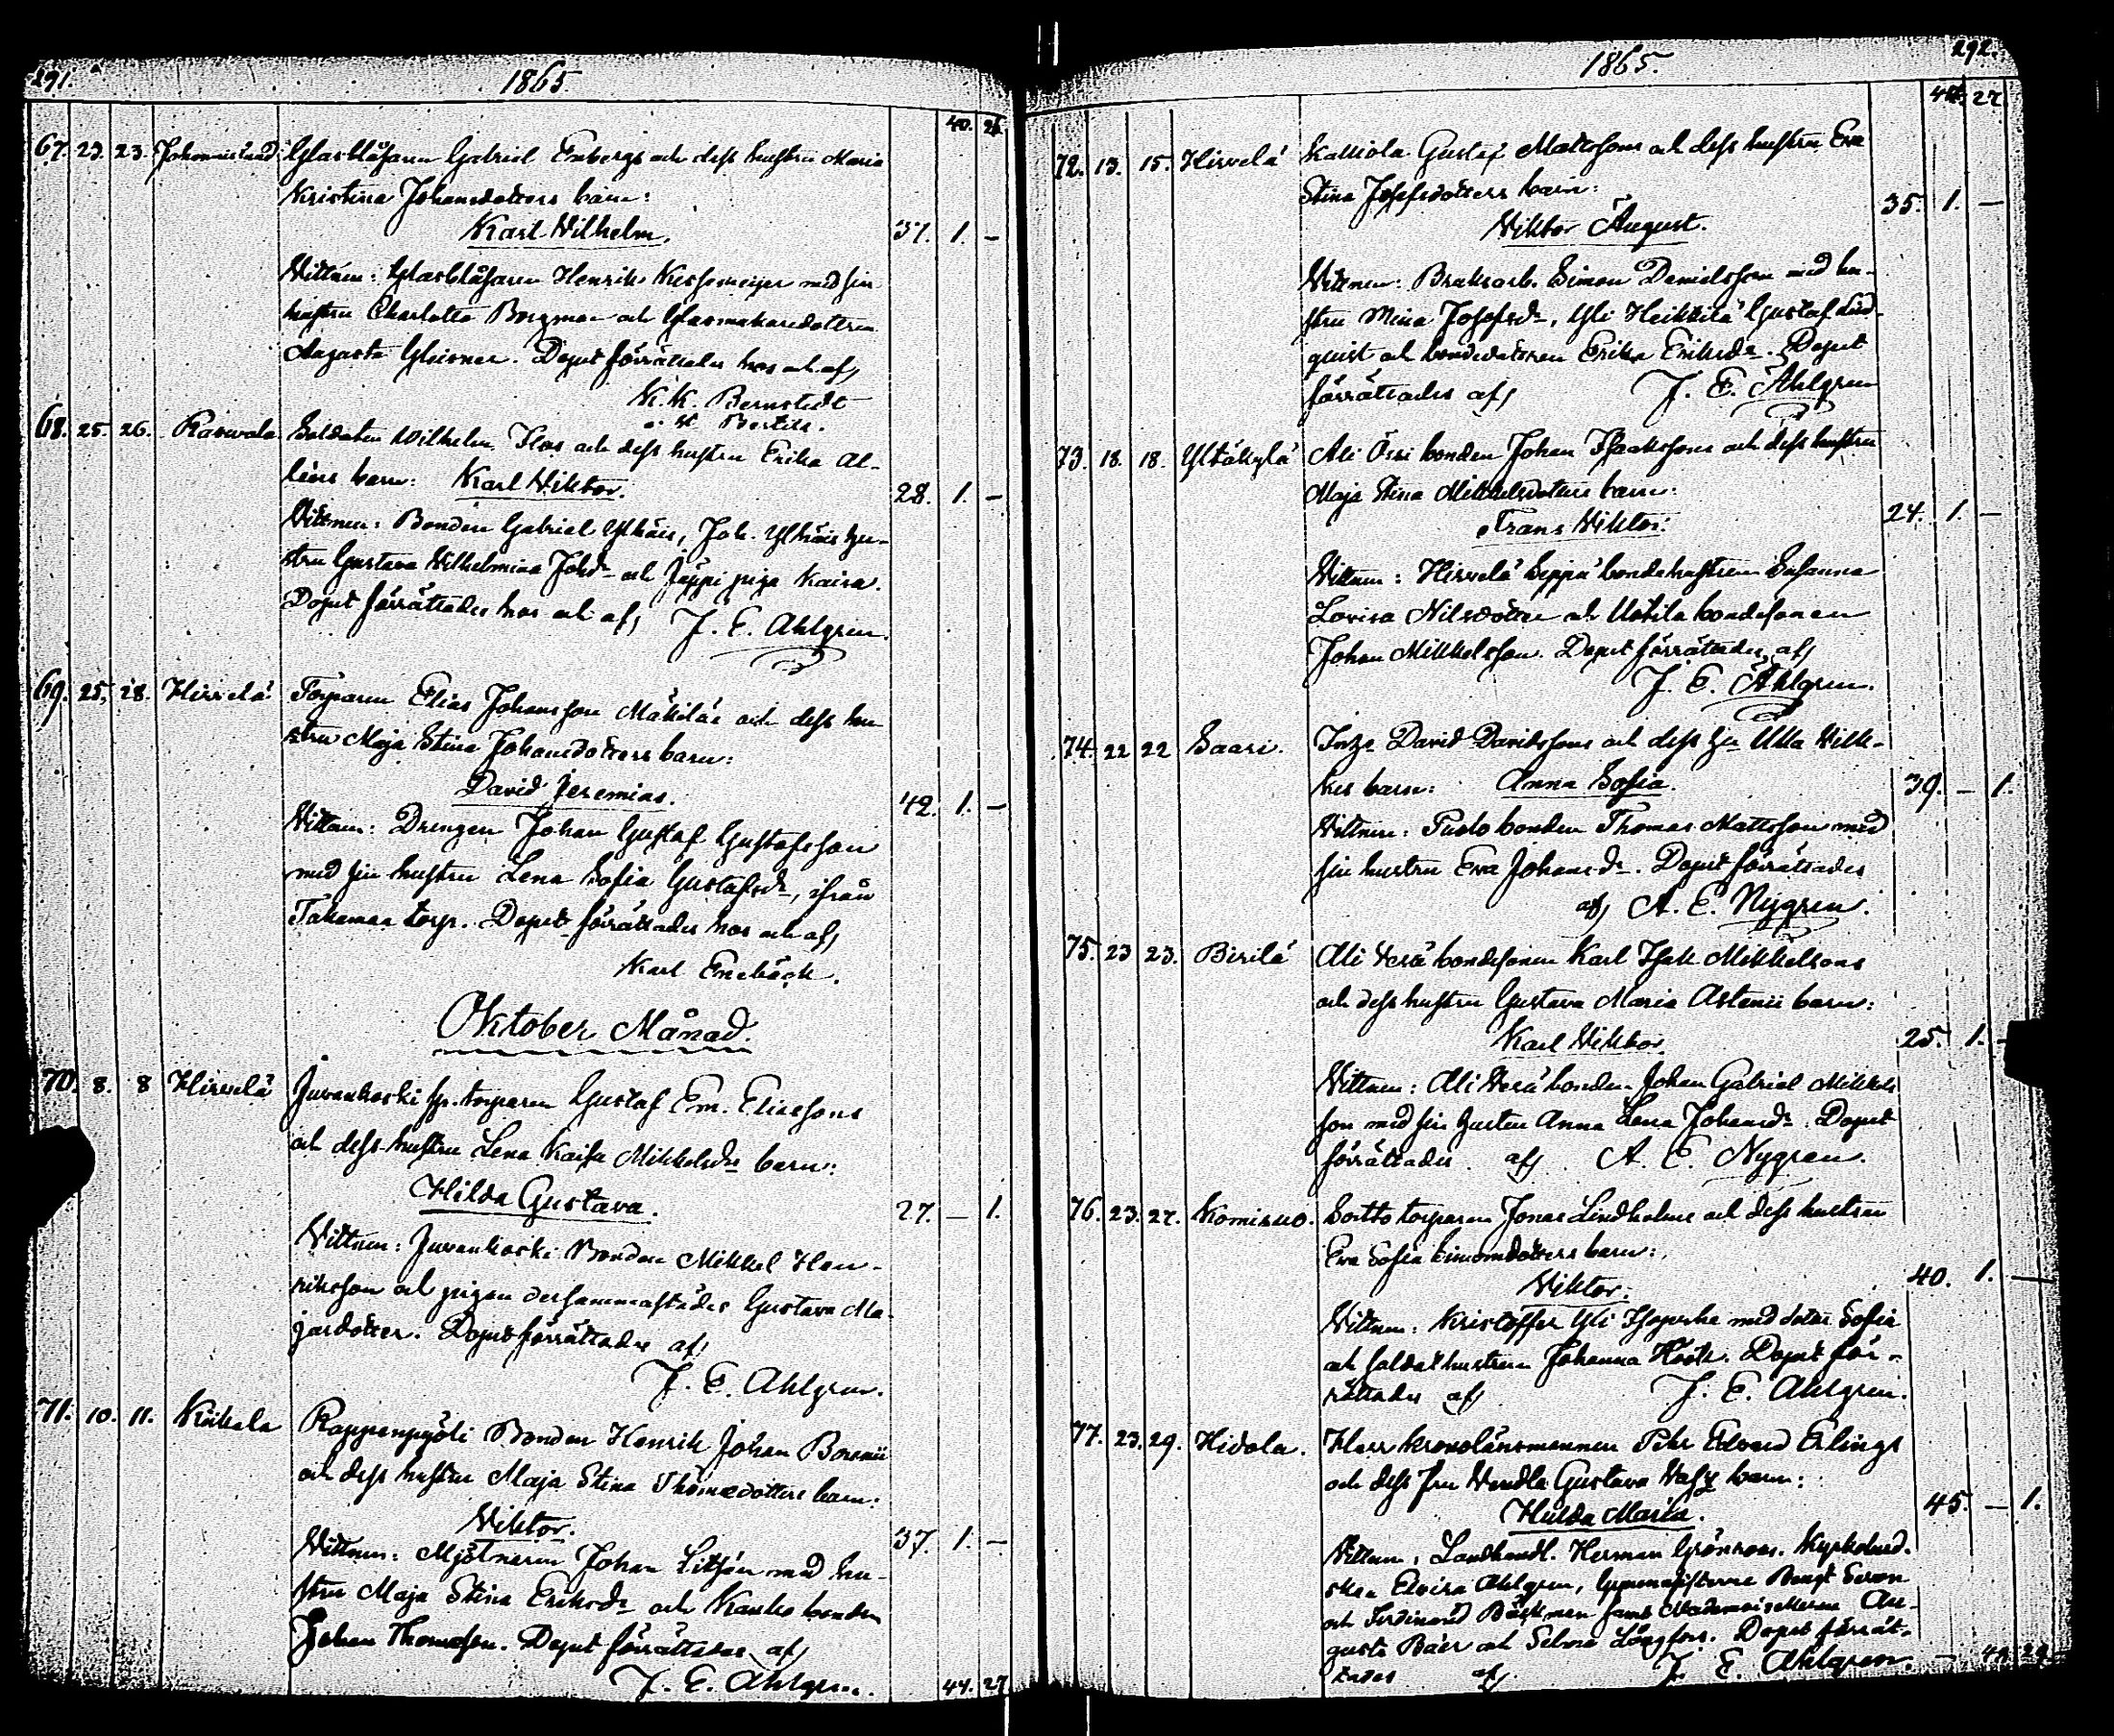 291. 1865.
40. 26.
67. 23. 23. Johannislund Glasblåsaren Gabriel Enbergs och dess hustru Maria
Kristina Johansdotters barn:
Karl Wilhelm. 37. 1. –
Vittnen: Glasblåsaren Henrik med sin
hustru Charlotta Borgman och Glasmakaredottren
Augusta. Dopet förrättades hos och af,
K. K. Bernstedt
i St Bertils.
68. 25. 26. Raswala Soldaten Wilhelm Flos och dess hustru Erika Al-
léns barn: Karl Viktor. 28. 1. –
Vittnen: Bonden Gabriel Ylhäis, Joh. Ylhäis hu-
stru Gustava Wilhelmina Johsdr och Jäppi piga Kaisa.
Dopet förrättades hos och af, J. E. Ahlgren.
69. 25. 28. Hirvelä Torparen Elias Johansson Mäkiläs och dess hu
stru Maja Stina Johansdotters barn:
David Jeremias. 42. 1. –
Vittnen: Drengen Johan Gustaf Gustafsson
med sin hustru Lena Sofia Gustafsdr, ifrån
Takamaa torp. Dopet förrättades hos och af,
Karl Enebäck.
Oktober Månad.
70. 8. 8 Hirvelä Juvankoski sp. torparen Gustaf Em. Eliassons
och dess hustru Lena Kaisa Mikkelsdrs barn:
Hilda Gustava. 27. – 1.
Vittnen: Juvankoski Bonden Mikkel Hen-
riksson och pigan dersammastädes Gustava Ma-
jasdotter. Dopet förrättades af,
J. E. Ahlgren.
71. 10. 11. Kiikala Rappenpyöli Bonden Henrik Johan Borenii
och dess hustru Maja Stina Thomædotters barn:
Viktor. 37. 1. –
Vittnen: Mjölnaren Johan Litsén med hu-
stru Maja Stina Eriksdr och Kauko bonden
Johan Thomasson. Dopet förrättades af,
J. E. Ahlgren. 44. 27
1865. 292.
44. 27.
72. 13. 15. Hirvelä Kalliola Gustaf Mattssons och dess hustru Eva
Stina Josefsdotters barn: 35. 1. –
Viktor August.
Vittnen: Bruksarb. Simon Danielsson med hu-
stru Mina Josefsdr, Yli Heikkilä Gustaf Lind-
quist och bondedottren Erika Eriksdr. Dopet
förrättades af, J. E. Ahlgren
73. 18. 18. Yltäkylä Ali Össi bonden Johan Isaakssons och dess hustru
Maja Stina Mikkelsdotters barn:
Frans Viktor. 24. 1. –
Vittnen: Hirvelä Seppä bondehustrun Susanna
Lovisa Nilsdotter och Uotila bondesonen
Johan Mikkelsson. Dopet förrättades af,
J. E. Ahlgren.
74. 22 22 Saari. Inhs David Davidssons och dess hu Ulla Wilk-
kes barn: Anna Sofia. 39. – 1.
Vittnen: bonden Thomas Mattsson med
sin hustru Eva Johansdr. Dopet förrättades
af, A. E. Nygren.
75. 23 23. Pirilä Ali Verä bondesonen Karl Isak Mikkelsons
och dess hustru Gustava Maria Astenii barn:
Karl Viktor. 25. 1. –
Vittnen: Ali Verä bonden Johan Gabriel Mikkels
son med sin hustru Anna Lena Johansdr. Dopet
förrättades af, A. E. Nygren.
76. 23. 27. Komisuo. Soitto torparen Jonas Lindholms och dess hustru
Eva Sofia Simonsdotters barn:
Viktor. 40. 1. –
Vittnen: Kristoffer Yli Isoperhe med doter Sofia
och soldathustrun Johanna Hook. Dopet för-
rättades af, J. E. Ahlgren.
77. 23. 29. Hidola. Herr Kronolänsmannen Pehr Edvard Erlings
och dess fru Vendla Gustava barn:
Hulda Maria. 45. – 1.
Vittnen: Landhandl. Herman Grönroos. Kyrkoherd.
skan Elvira Ahlgren, Bengt
och Ferdinand Bäckman samt Mademoisellerna Au-
gusta Baër och Selma Långfors. Dopet förrät-
tades af, J. E. Ahlgren.